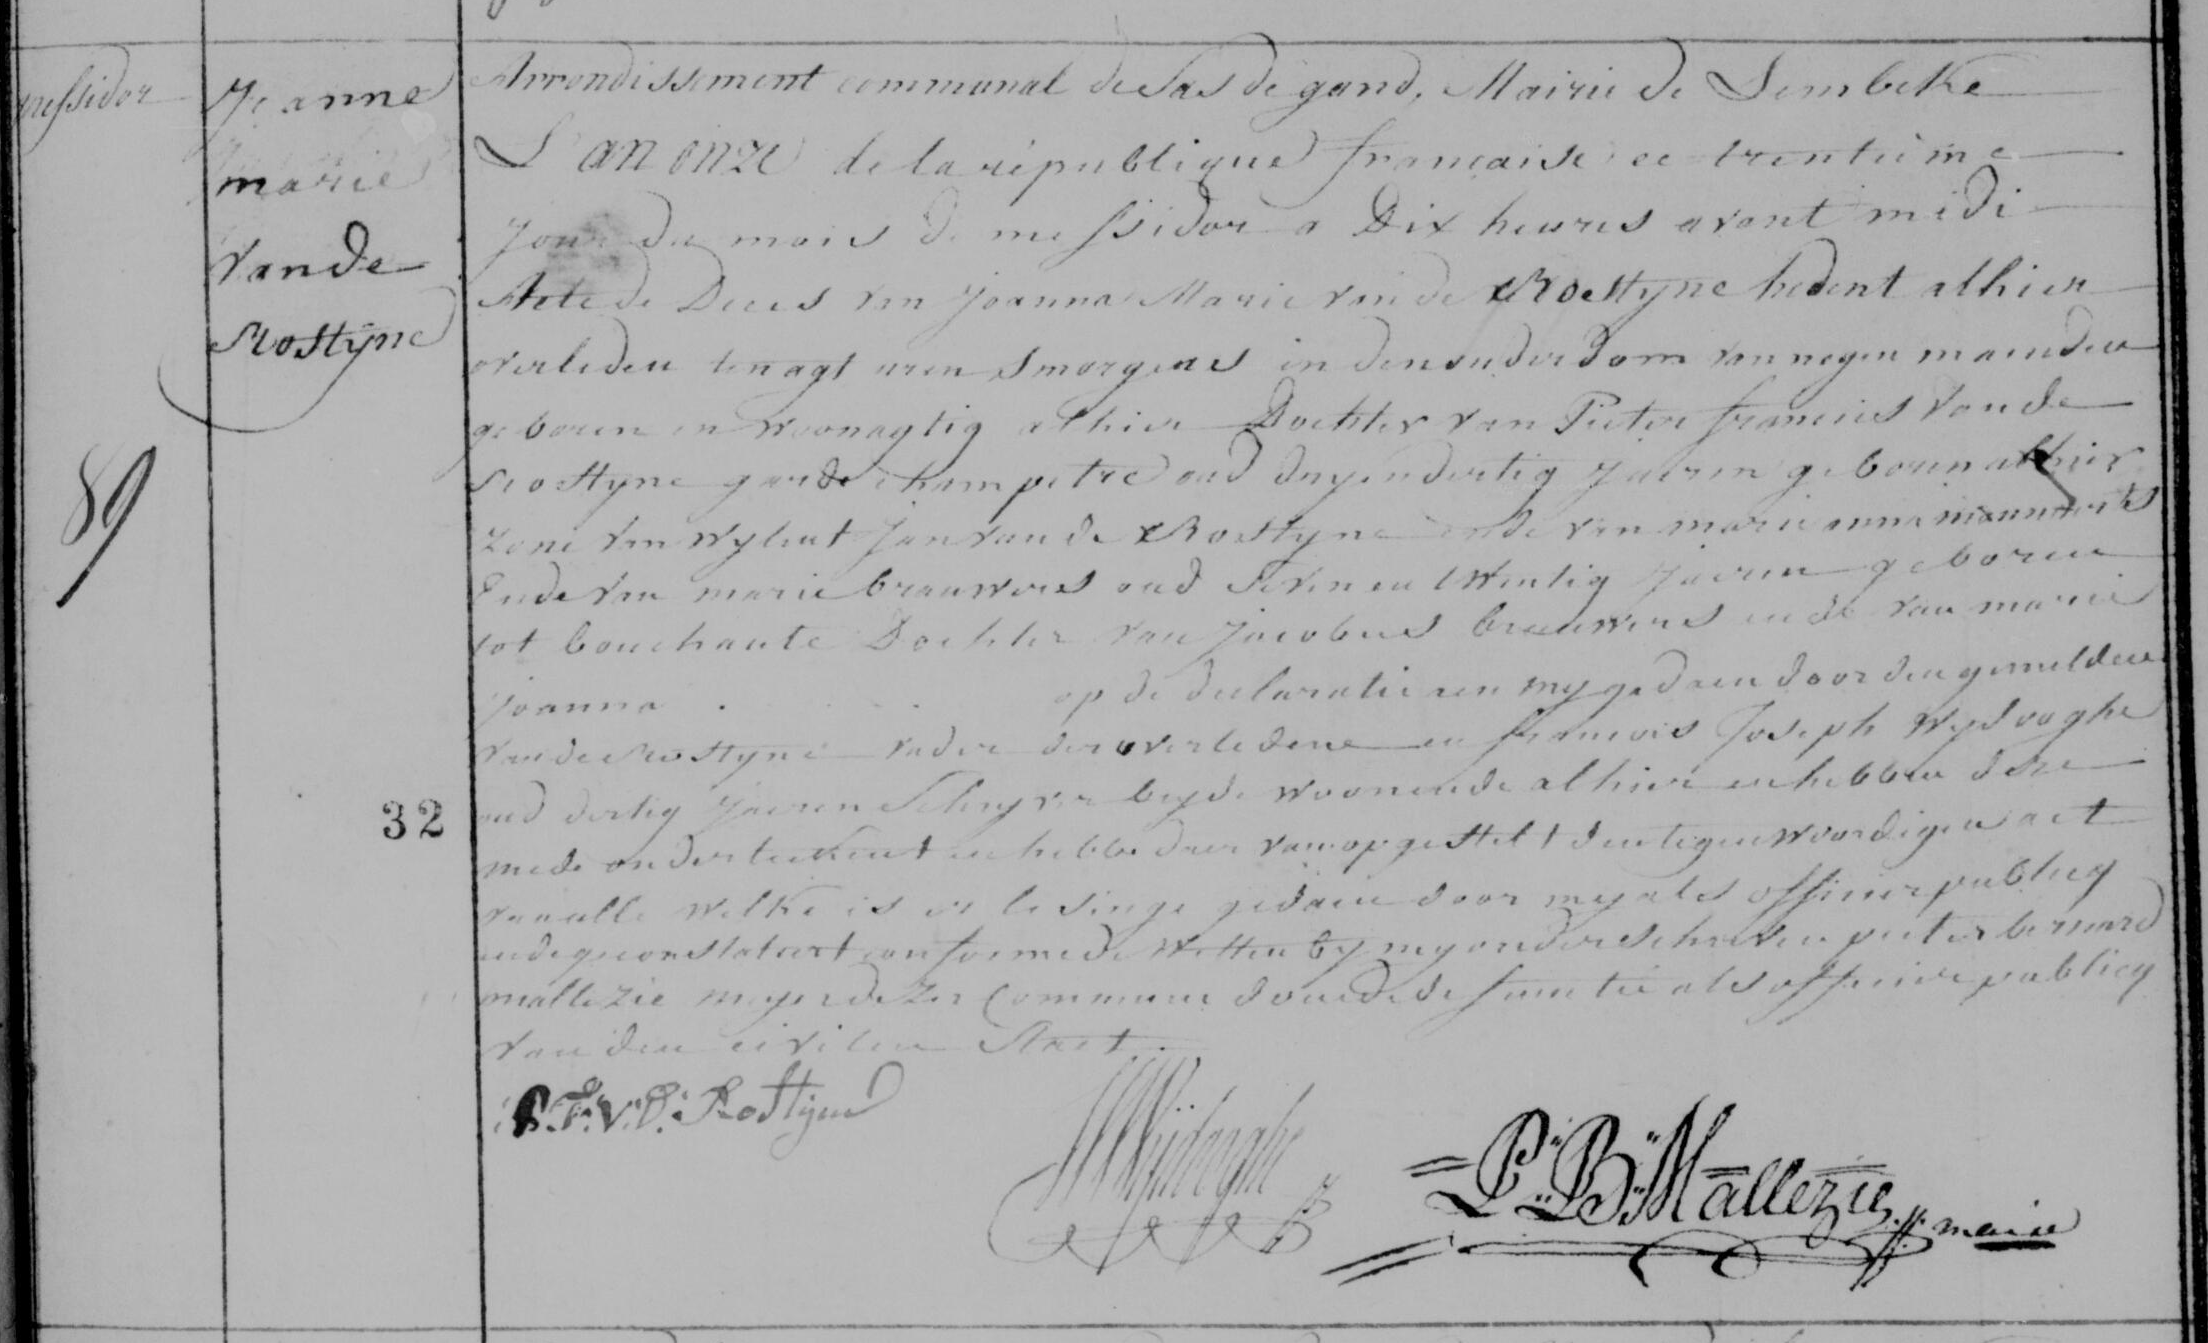 messidor
Jeanne
marie
vande
Rostyne
89
32
Arrondissement communal de Sas de gand, Mairie de Lembeke
L'an onze de la république francaise ce trentieme
Jour du mois de messidor a Dix heures avant midi
Acte de Deces van Joanna Marie van de Rostyne hedent alhier
overleden ten agt uren smorgens in den ouderdom van negen maenden
geboren en woonagtig alhier Dochter van Pieter francies vande
rostyne garde champetre oud dryendertig Jaeren geboren alhier
zone van wylent Jan van de Rostyne ende van marie anna
Ende van marie brauwers oud seven en twintig Jaeren geboren
tot bouchaute Dochter van Jacobus brauwers ende van marie
joanna . . . . op de declaratie aen my gedaen door den gemelden
van de Rostyne vader der overledene en francois Joseph Wydooghe
oud dertig Jaeren Schryver beyde woonende alhier en hebben dese
mede onderteekent en hebbe daer van opgestelt den tegenwoordigen act
van alle welke is er lesinge gedaen door my als officier publicq
ende geconstateert conforme de Wetten by my onderschreven pieter bernard
mallezie meyer dezer Commune doende de functie als officier publicq
van den civilen Staet.
P.F.V.D. Rostyne
Wÿdooghe
P.B. Mallezie maire